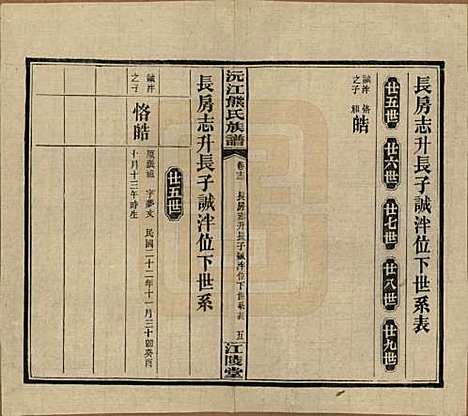 長房志升長子誠泮位下世系表
廿五世
廿六世
廿七世
廿八世
廿九世
誠泮
之子
恪
皓
沅江熊氏族譜
長房志升長子誠泮位下世系
五
江陵堂
長房志升長子誠泮位下世系
廿五世
誠泮
之子
恪皓
字夢文
民國二十二年十一月三十
癸酉
十月十三午時生